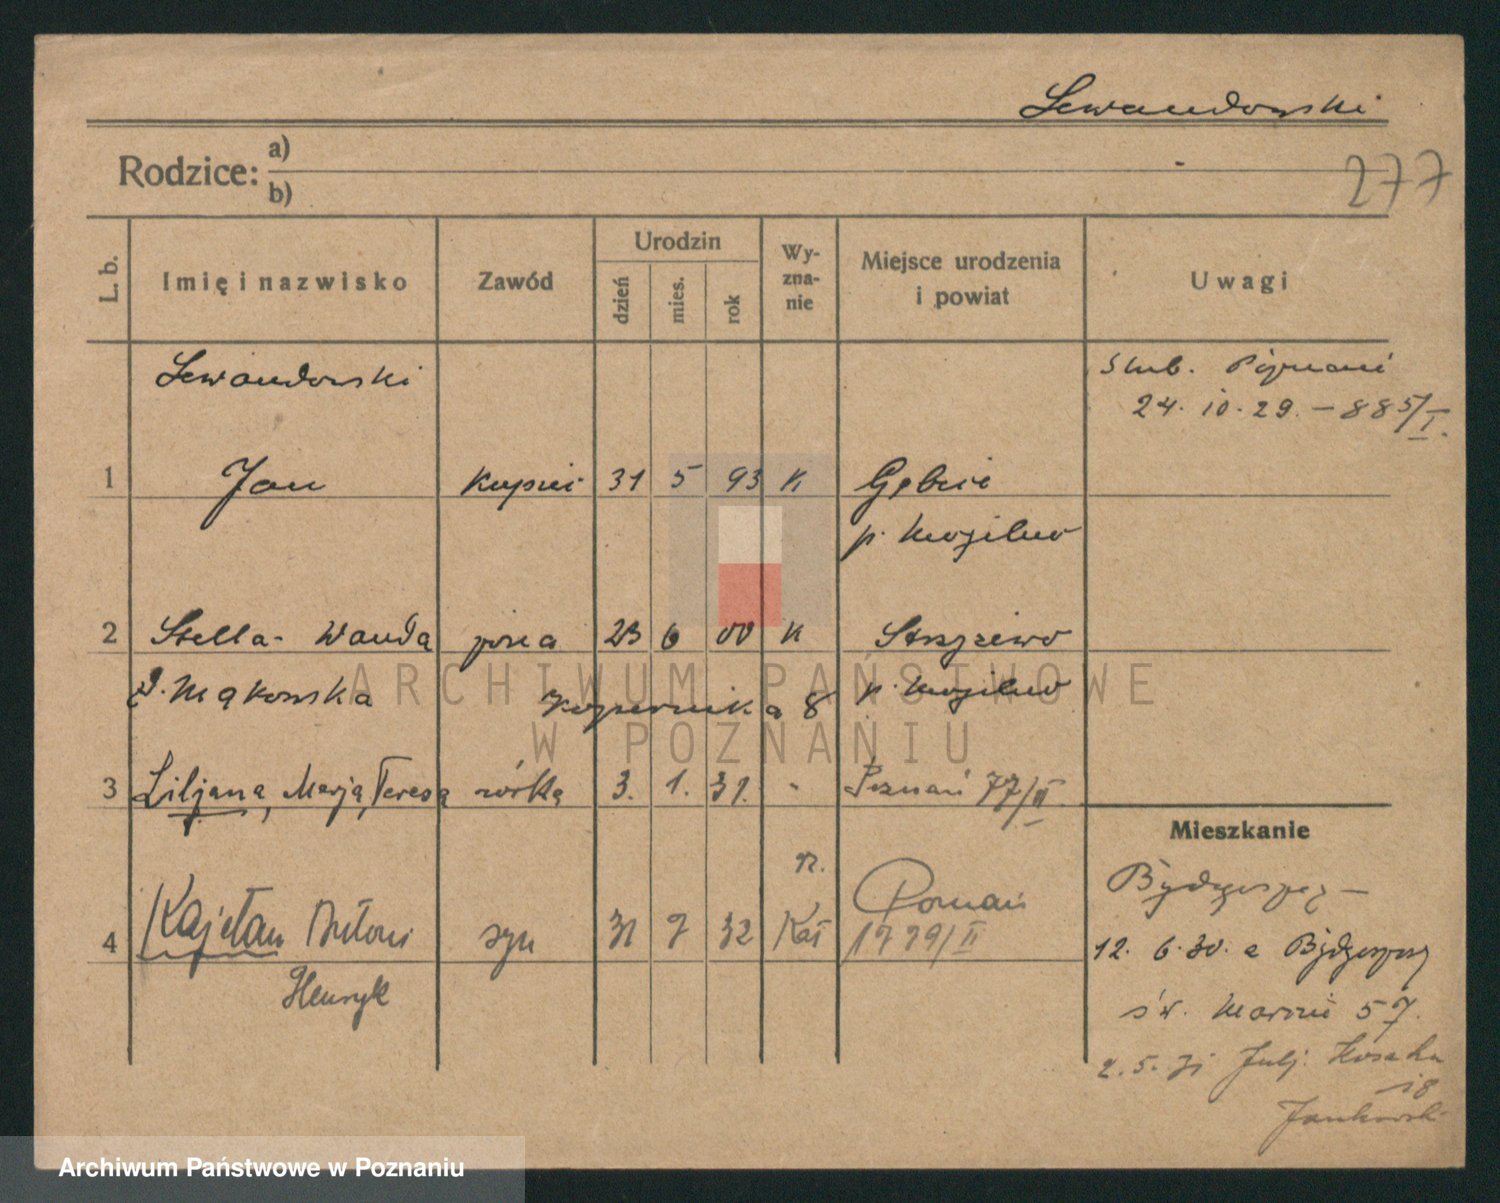 Lewandowski
Rodzice: a)
b)
277
L. b.
Imię i nazwisko
Zawód
Urodzin
dzień
mies.
rok
Wy-
zna-
nie
Miejsce urodzenia
i powiat
Uwagi
Lewandowski
ślub. Poznań
24. 10. 29. – 885/I.
1 Jan kupiec 31 5 93 K Gębice
p. Mogilno
2 Stella- Wanda żona 23 6 00 K Strzyżewo
z. Mąkowska Kopernika 8 p. Mogilno
3 Liljana, Marja, Teresa córka 3. 1. 31. - Poznań 77/II.
Mieszkanie
rz.
Bydgoszcz –
4 Kajetan Antoni syn 31 7 32 Kat Poznań
1779/II
Henryk
12. 6. 30. z Bydgoszczy
św. Marcin 57.
2. 5. 31 Julj. Kossaka
18
Jankowski
ARCHIWUM PAŃSTWOWE
W POZNANIU
Archiwum Państwowe w Poznaniu